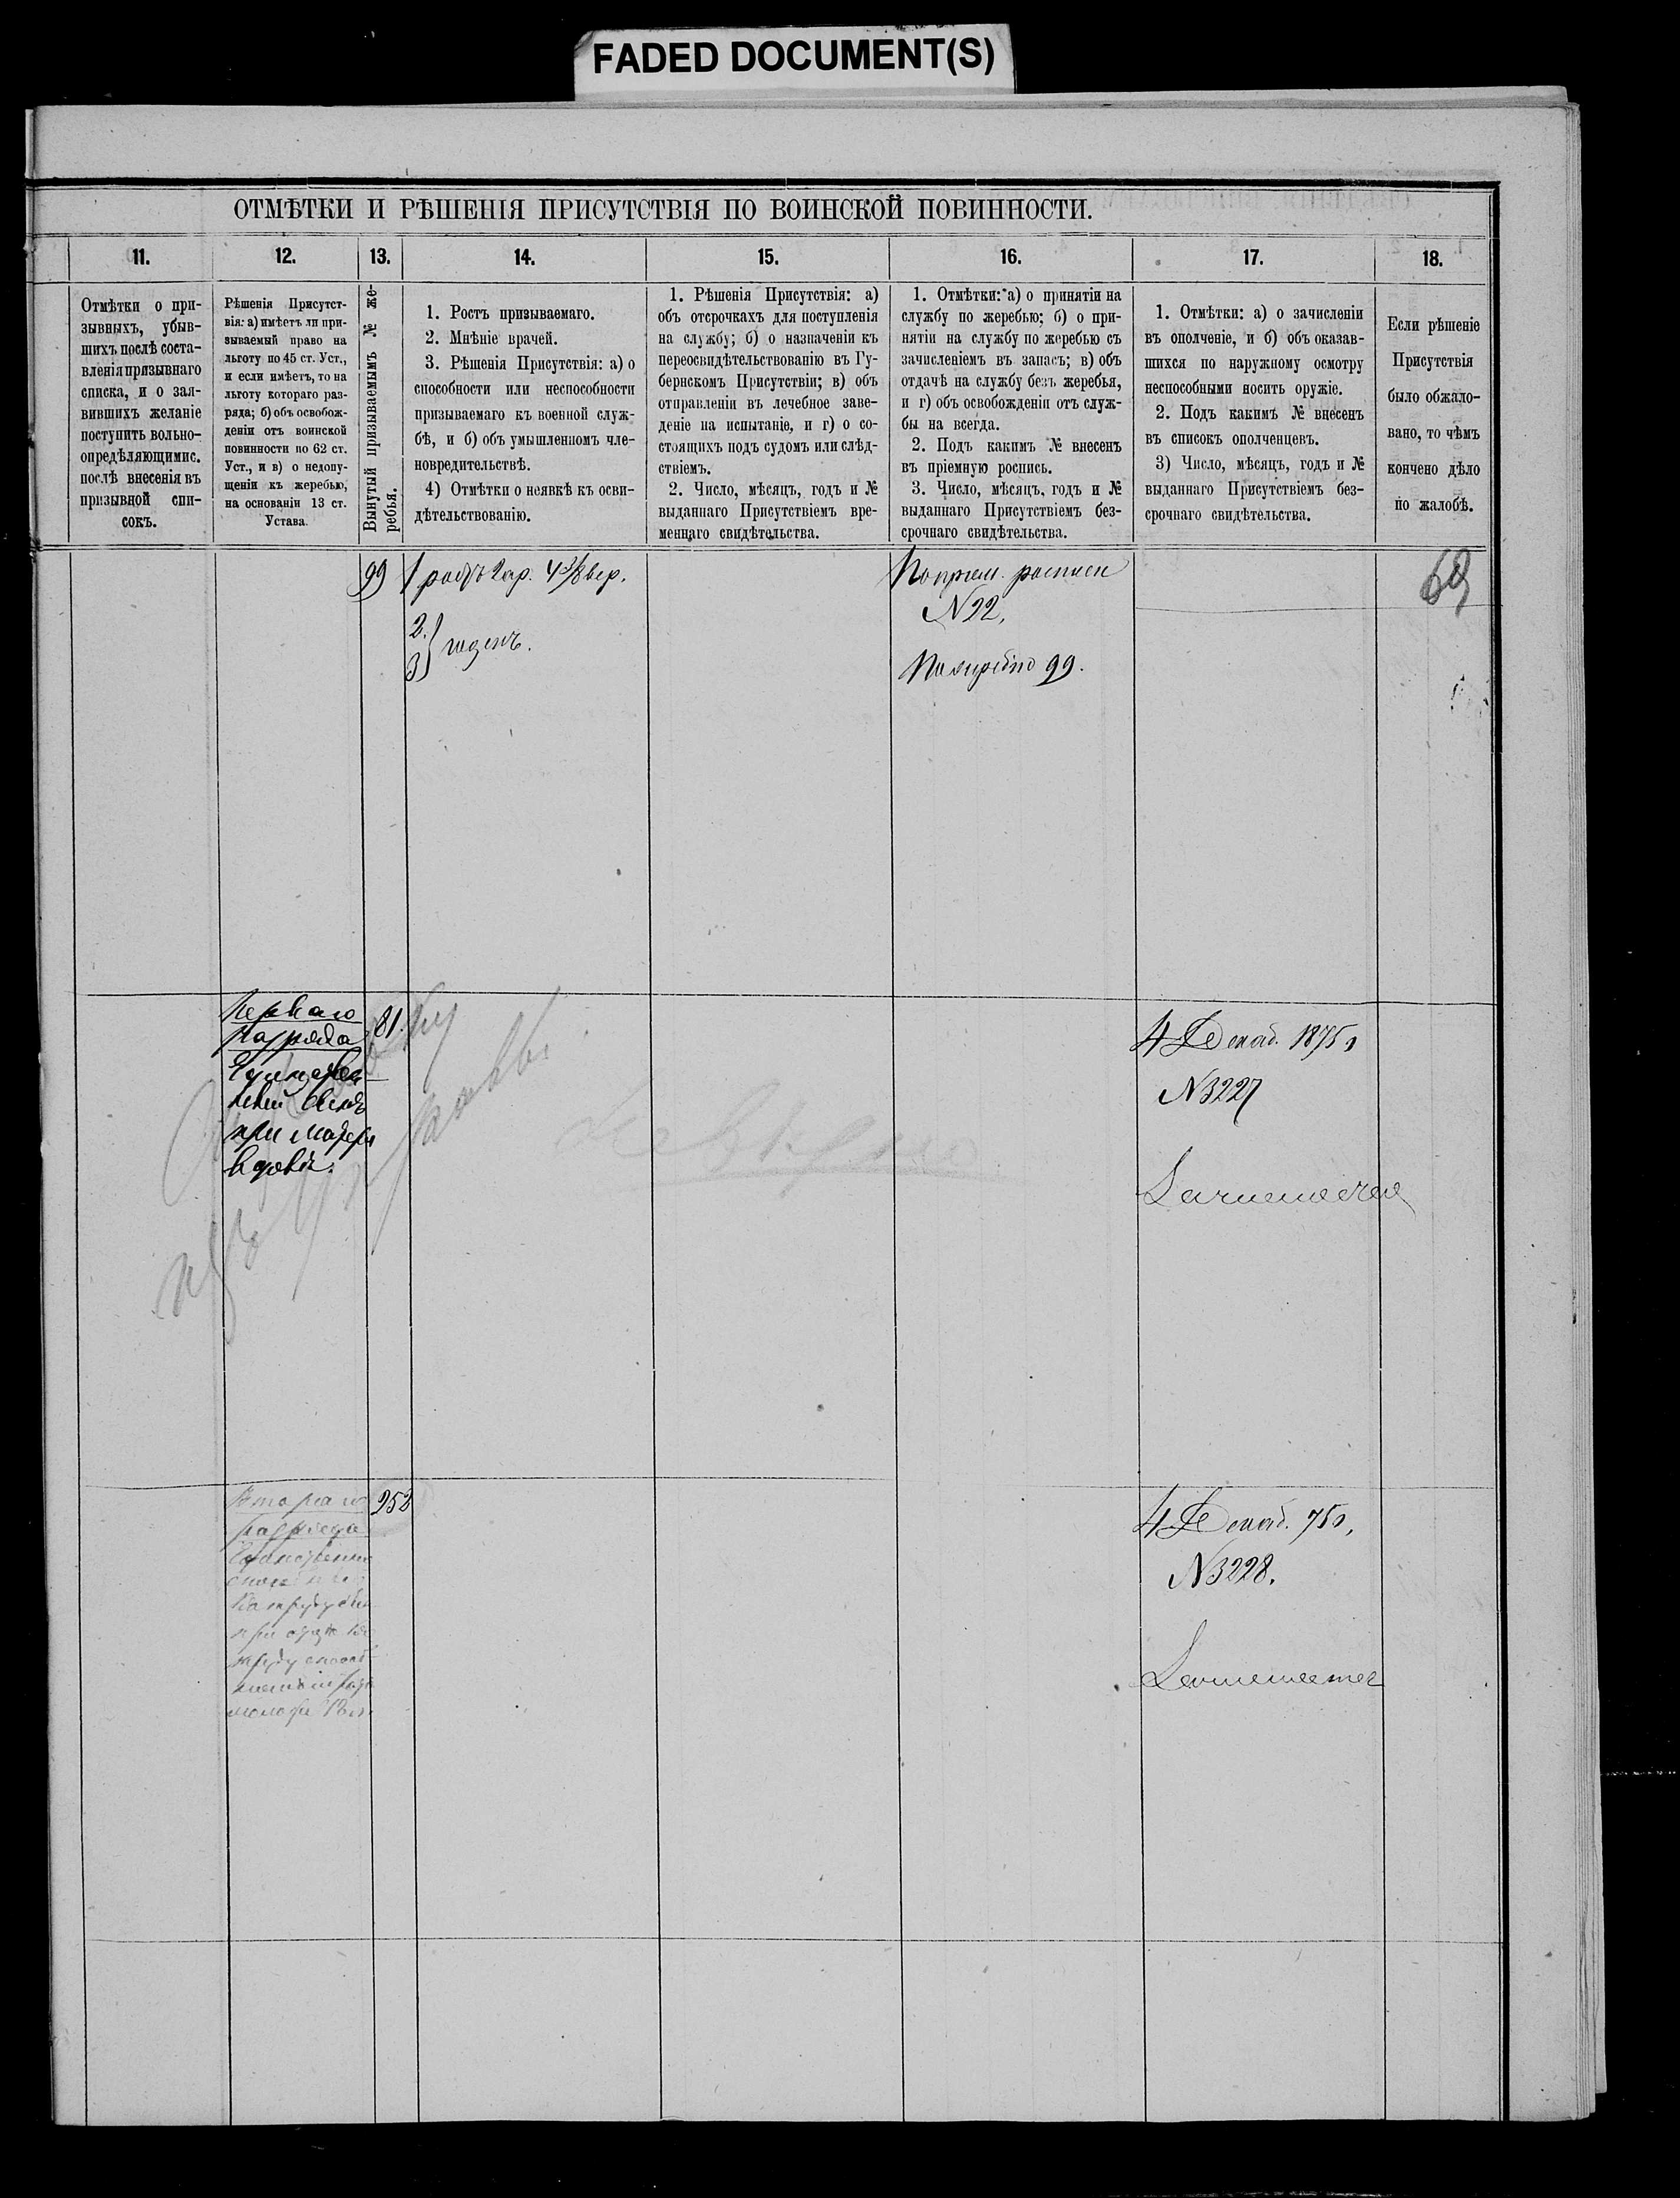 FADED DOCUMENT(S)
ОТМѢТКИ И РѢШЕНІЯ ПРИСУТСТВІЯ ПО ВОИНСКОЙ ПОВИННОСТИ.
11.
12.
13.
14.
15.
16.
17.
18.
Отмѣтки о при-
зывныхъ, убыв-
шихъ послѣ соста-
вленія призывнаго
списка, и о зая-
вившихъ желаніе
поступить вольно-
опредѣляющимис.
послѣ внесенія въ
призывной спи-
сокъ.
Рѣшенія Присутст-
вія: а) имѣетъ ли при-
зываемый право на
льготу по 45 ст. Уст.,
и если имѣетъ, то на
льготу котораго раз-
ряда; б) объ освобож-
деніи отъ воинской
повинности по 62 ст.
Уст., и в) о недопу-
щеніи къ жеребью,
на основаніи 13 ст.
Устава.
Вынутый призываемымъ № же-
ребья.
1. Ростъ призываемаго.
2. Мнѣніе врачей.
3. Рѣшенія Присутствія: а) о
способности или неспособности
призываемаго къ военной служ-
бѣ, и б) объ умышленномъ чле-
новредительствѣ.
4) Отмѣтки о неявкѣ къ осви-
дѣтельствованію.
1. Рѣшенія Присутствія: а)
объ отсрочкахъ для поступленія
на службу; б) о назначеніи къ
переосвидѣтельствованію въ Гу-
бернскомъ Присутствіи; в) объ
отправленіи въ лечебное заве-
деніе на испытаніе, и г) о со-
стоящихъ подъ судомъ или слѣд-
ствіемъ.
2. Число, мѣсяцъ, годъ и №
выданнаго Присутствіемъ вре-
меннаго свидѣтельства.
1. Отмѣтки: а) о принятіи на
службу по жеребью; б) о при-
нятіи на службу по жеребью съ
зачисленіемъ въ запасъ; в) объ
отдачѣ на службу безъ жеребья,
и г) объ освобожденіи отъ служ-
бы на всегда.
2. Подъ какимъ № внесенъ
въ пріемную роспись.
3. Число, мѣсяцъ, годъ и №
выданнаго Присутствіемъ без-
срочнаго свидѣтельства.
1. Отмѣтки: а) о зачисленіи
въ ополченіе, и б) объ оказав-
шихся по наружному осмотру
неспособными носить оружіе.
2. Подъ какимъ № внесенъ
въ списокъ ополченцевъ.
3) Число, мѣсяцъ, годъ и №
выданнаго Присутствіемъ без-
срочнаго свидѣтельства.
Если рѣшеніе
Присутствія
было обжало-
вано, то чѣмъ
кончено дѣло
по жалобѣ.
99
1 ростъ 2 ар. 4 3/8 вер.
2.
3 } годенъ.
По прием. росписи
N 22,
По жеребію 99.
69
Перваго
разряда
Единствен-
ный сынъ
при матери
вдовѣ.
81.
4 Декаб. 1875 г
N 3227
Втораго
разряда
252
4 Декаб. 75 г,
N 3228.